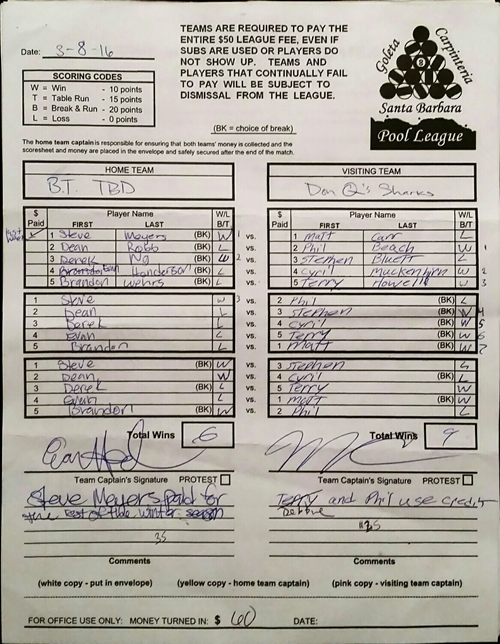 TEAMS ARE REQUIRED TO PAY THE
ENTIRE $50 LEAGUE FEE, EVEN IF
SUBS ARE USED OR PLAYERS DO
NOT SHOW UP. TEAMS AND
PLAYERS THAT CONTINUALLY FAIL
TO PAY WILL BE SUBJECT TO
DISMISSAL FROM THE LEAGUE.
Date: 3-8-16
Goleta Carpinteria
Santa Barbara
Pool League
SCORING CODES
W = Win - 10 points
T = Table Run - 15 points
B = Break & Run - 20 points
L = Loss - 0 points
(BK = choice of break)
The home team captain is responsible for ensuring that both teams' money is collected and the
scoresheet and money are placed in the envelope and safely secured after the end of the match.
HOME TEAM VISITING TEAM
B.T. TBD Don Q's Sharks
$ Paid Player Name FIRST LAST W/L B/T $ Paid Player Name FIRST LAST W/L B/T
1 Steve Meyers (BK) W 1 vs. 1 Matt Carr L
2 Dean Robb L vs. 2 Phil Beach W 1
3 Derek Ng (BK) W 2 vs. 3 Stephen Bluett L
4 Henderson (BK) L vs. 4 Cyril Muckenhirn W 2
5 Brandon Wehrs (BK) L vs. 5 Terry Howell W 3
1 Steve W 3 vs. 2 Phil (BK) L
2 Dean L vs. 3 Stephen (BK) W 4
3 Derek L vs. 4 Cyril (BK) W 5
4 Evan L vs. 5 Terry (BK) W 6
5 Brandon L vs. 1 Matt (BK) W 7
1 Steve (BK) W vs. 3 Stephen L
2 Dean W vs. 4 Cyril (BK) L
3 Derek (BK) L vs. 5 Terry W
4 Evan L vs. 1 Matt (BK) W
5 Brandon (BK) W vs. 2 Phil L
Total Wins 6 Total Wins 9
Team Captain's Signature PROTEST Team Captain's Signature PROTEST
Steve Meyers paid for
the rest of the winter season
35
Terry and Phil use credit
Debbie
35
Comments Comments
(white copy - put in envelope) (yellow copy - home team captain) (pink copy - visiting team captain)
FOR OFFICE USE ONLY: MONEY TURNED IN: $ 60 DATE: